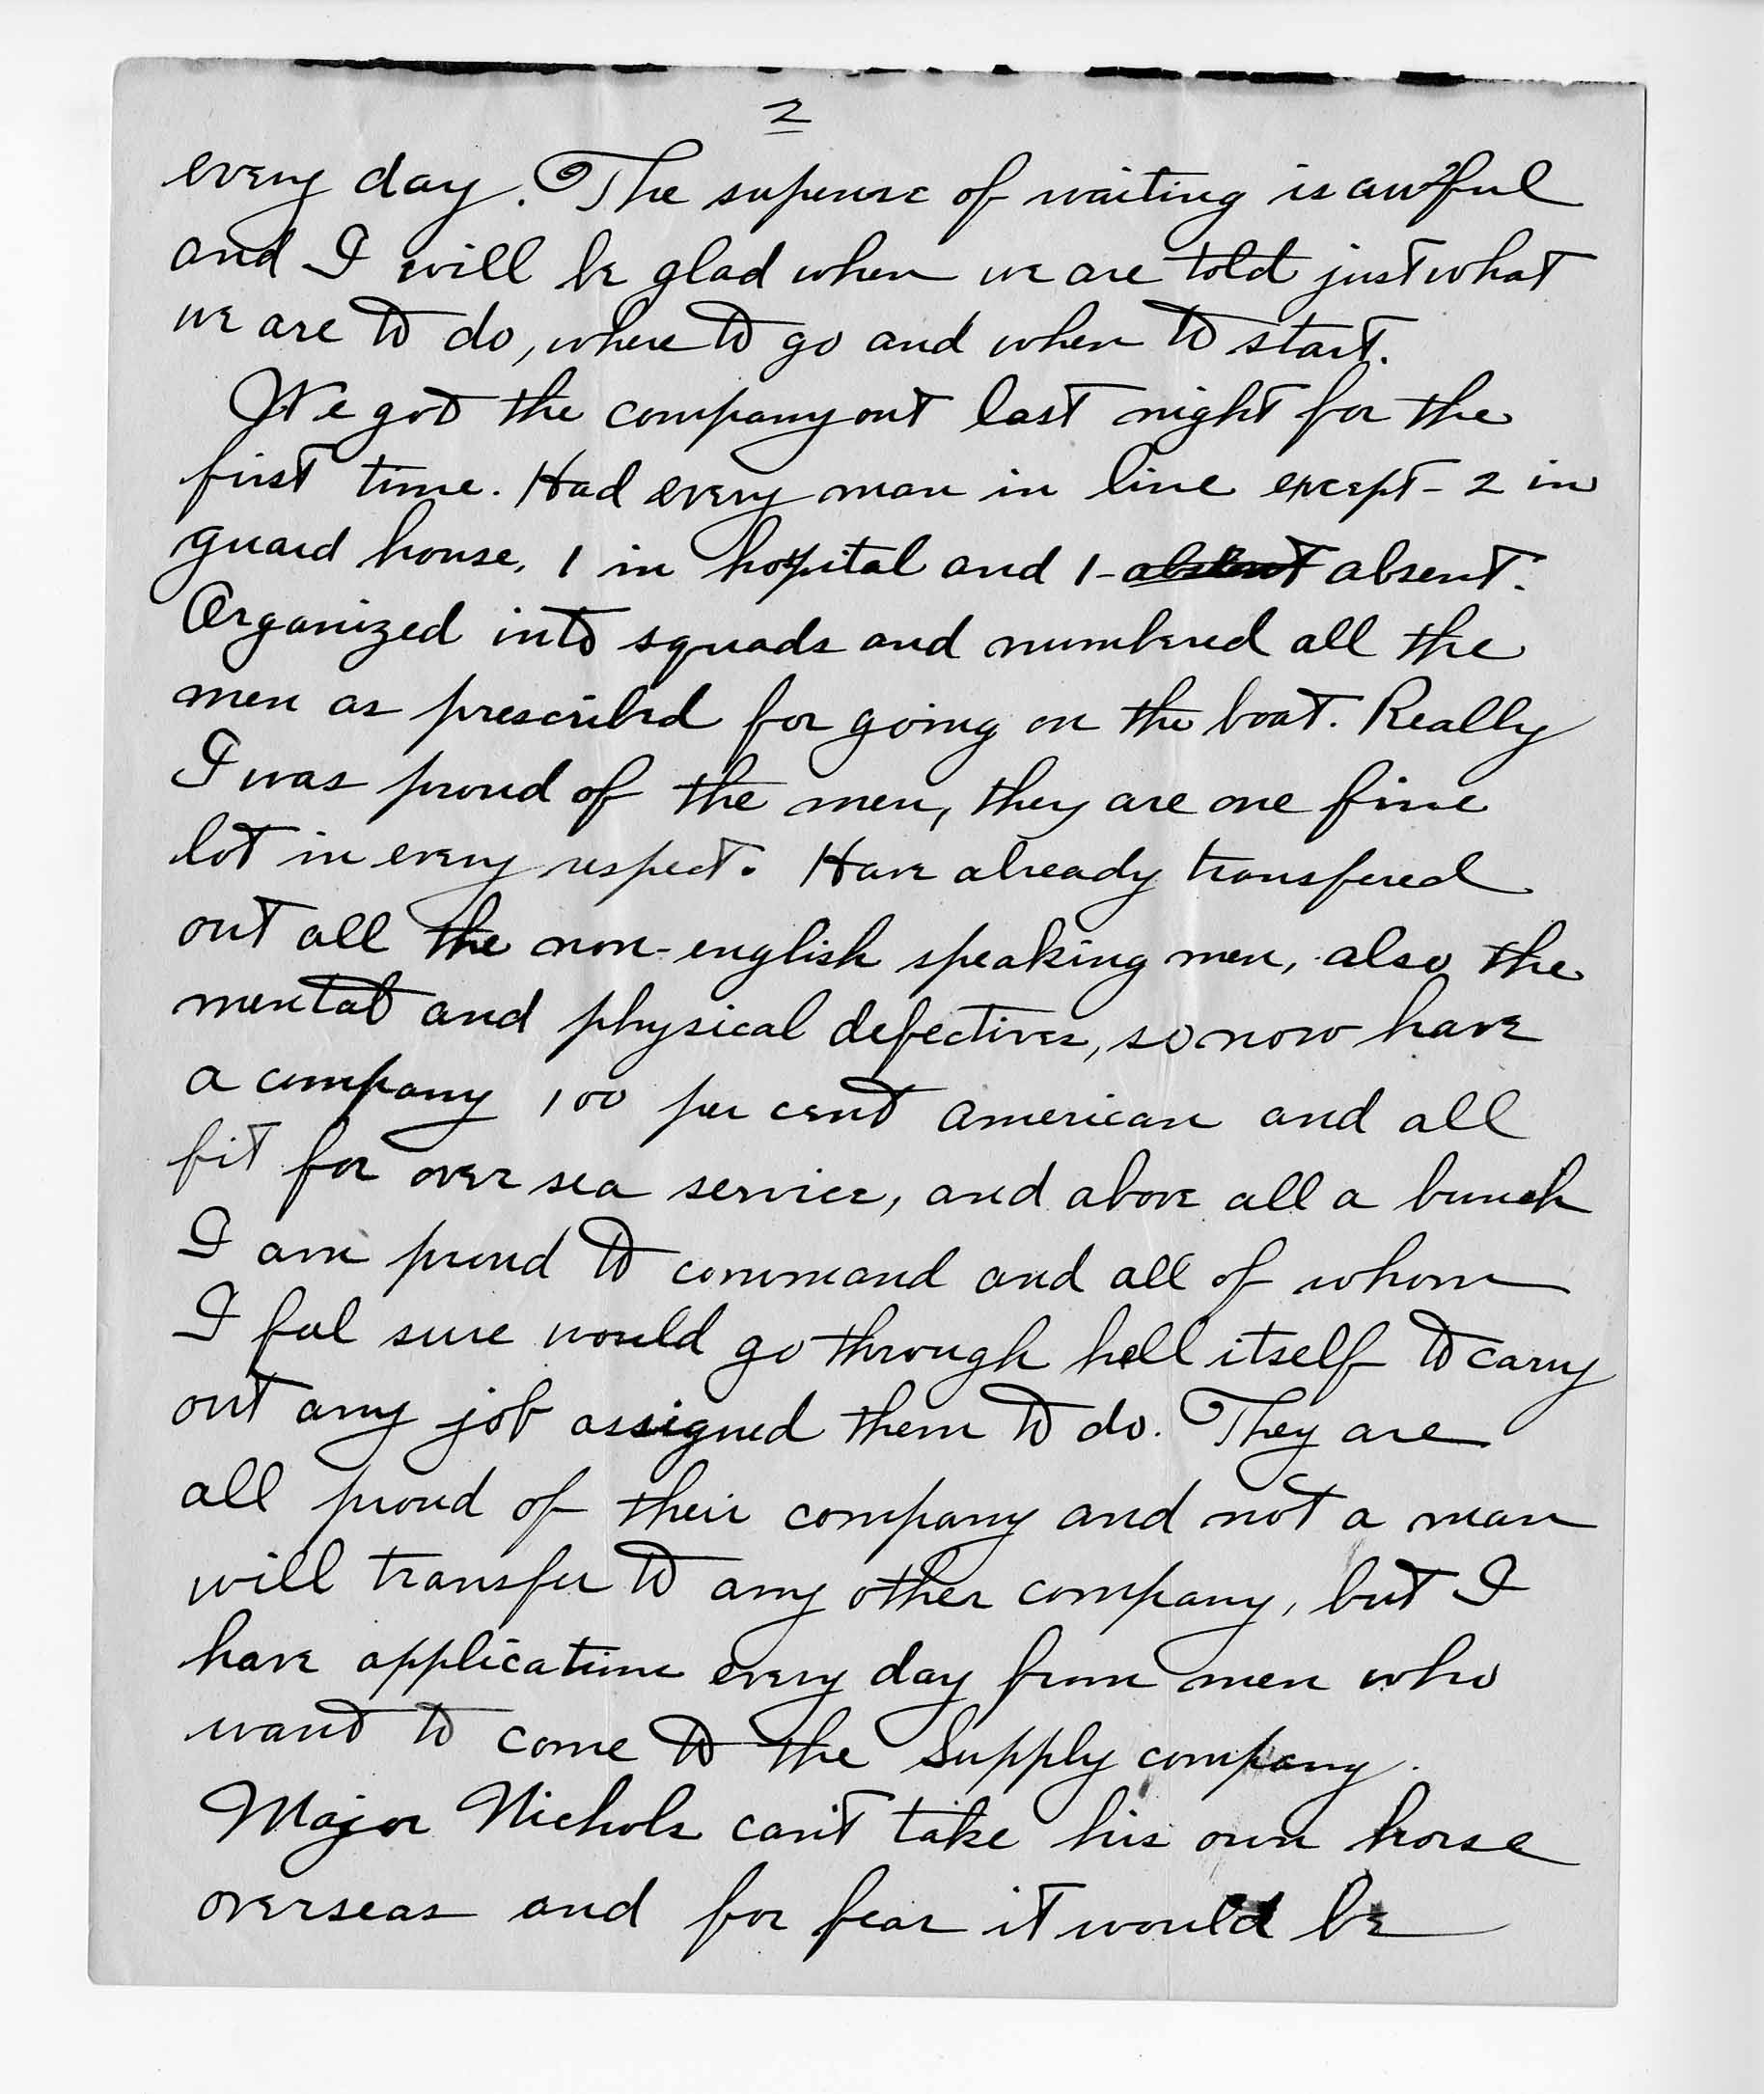 2
every day. The supense of waiting is awful
and I will be glad when we are told just what
we are to do, where to go and when to start.
We got the company out last night for the
first time. Had every man in line except - 2 in
guard house, 1 in hospital and 1 - absent.
Organized into squads and numbered all the
men as prescribed for going on the boat. Really
I was proud of the men, they are one fine
lot in every respect. Have already transfered
out all the non-english speaking men, also the
mental and physical defectives, so now have
a company 100 per cent american and all
fit for over sea service, and above all a bunch
I am proud to command and all of whom
I feel sure would go through hell itself to carry
out any job assigned them to do. They are
all proud of their company and not a man
will transfer to any other company, but I
have applications every day from men who
want to come to the Supply company.
Major Nichols can't take his own horse
overseas and for fear it would be